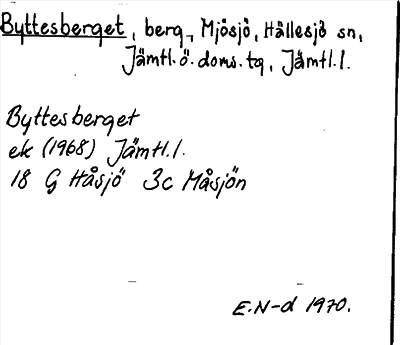 Byttesberget, berg, Mjösjö, Hällesjö sn,
Jämtl. ö. doms. tg, Jämtl. l.
Byttesberget
ek (1968) Jämtl. l.
18 G Håsjö 3c Måsjön
E.N-d 1970.